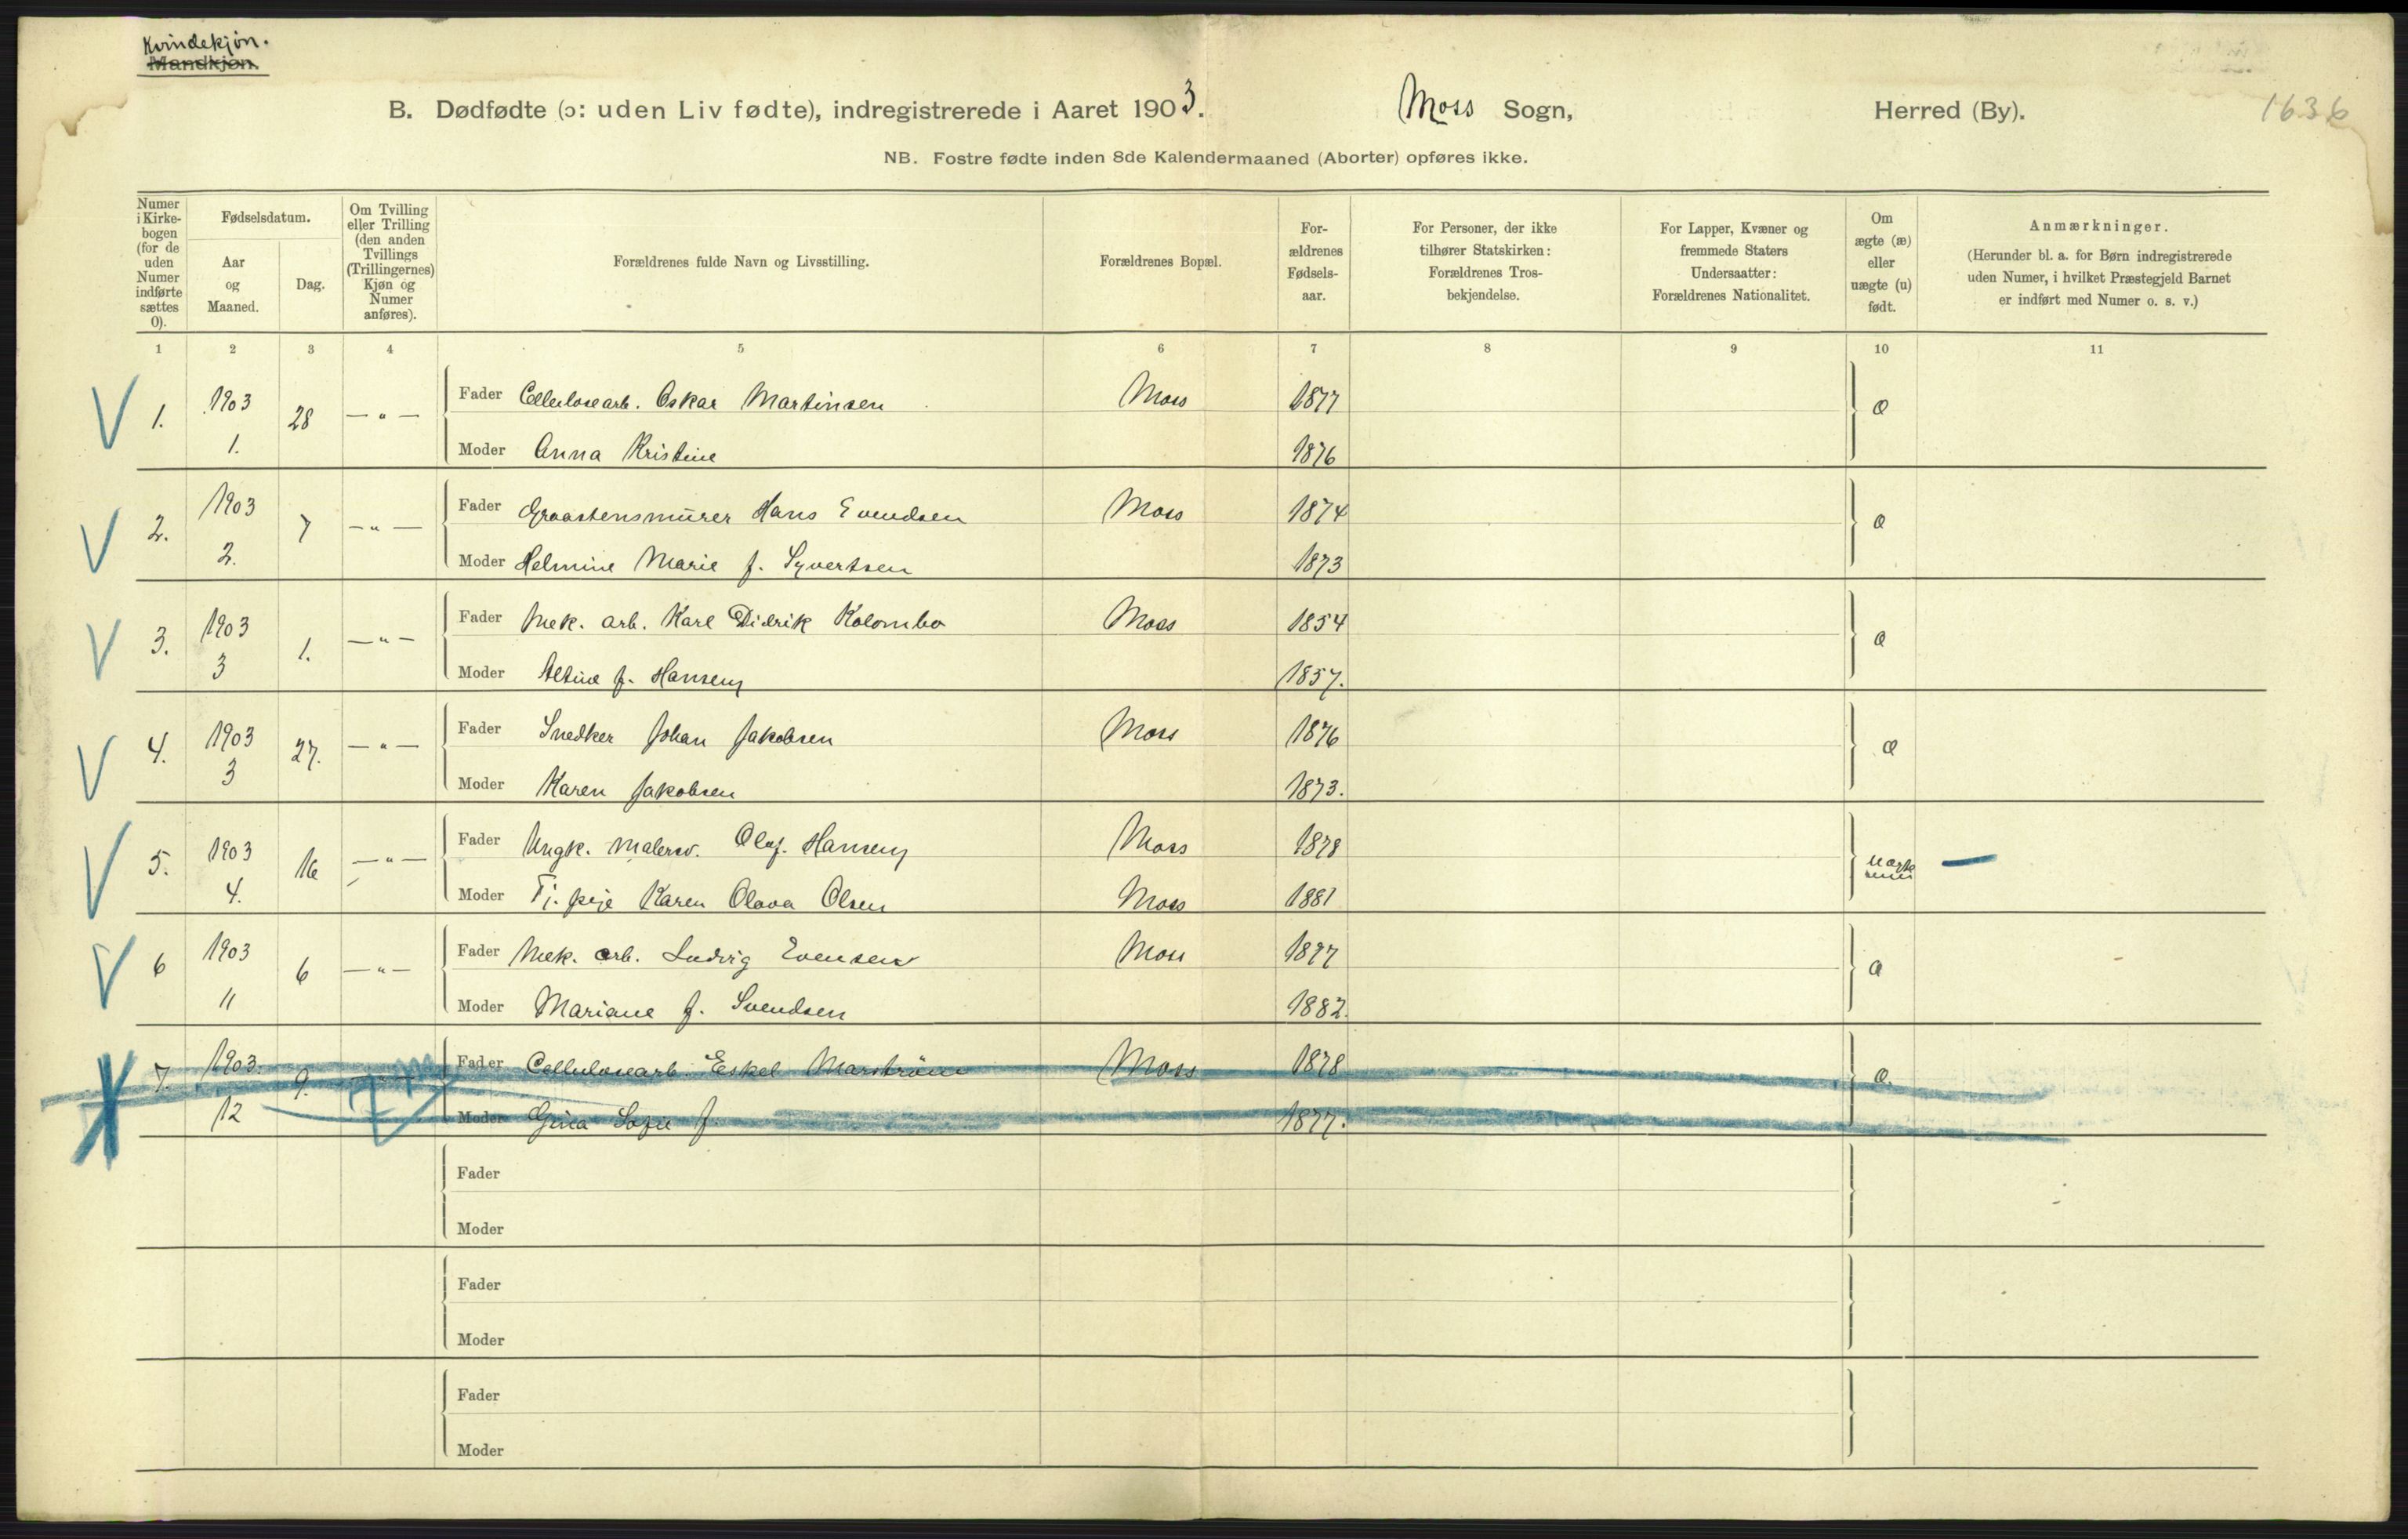 Kvindekjøn.
Mandkjøn.
B. Dødfødte (ɔ: uden Liv fødte), indregistrerede i Aaret 1903. Moss Sogn, Herred (By). 1636
NB. Fostre fødte inden 8de Kalendermaaned (Aborter) opføres ikke.
Numer i Kirke-bogen (for de uden Numer indførte sættes 0).
Fødselsdatum.
Aar og Maaned.
Dag.
Om Tvilling eller Trilling (den anden Tvillings (Trillingernes) Kjøn og Numer anføres).
Forældrenes fulde Navn og Livsstilling.
Forældrenes Bopæl.
For-ældrenes Fødsels-aar.
For Personer, der ikke tilhører Statskirken: Forældrenes Tros-bekjendelse.
For Lapper, Kvæner og fremmede Staters Undersaatter: Forældrenes Nationalitet.
Om ægte (æ) eller uægte (u) født.
Anmærkninger.
(Herunder bl. a. for Børn indregistrerede uden Numer, i hvilket Præstegjeld Barnet er indført med Numer o. s. v.)
1 2 3 4 5 6 7 8 9 10 11
V 1. 1903 28 — " — Fader Cellulosearb. Oskar Martinsen Moss 1877 æ
1. Moder Anna Kristine 1876
V 2. 1903 7 — " — Fader Graastensmurer Hans Evendsen Moss 1874 æ
2. Moder Helmine Marie f. Syvertsen 1873
V 3. 1903 1. — " — Fader Mek. arb. Karl Didrik Kolombo Moss 1854 æ
3 Moder Altine f. Hansen 1857.
V 4. 1903 27. — " — Fader Snedker Johan Jakobsen Moss 1876 æ
3 Moder Karen Jakobsen 1873.
V 5. 1903 16 — " — Fader Ungk. Malersv. Olaf Hansen Moss 1878 uægte —
4. Moder Tj. pige Karen Olava Olsen Moss 1881
V 6 1903 6 — " — Fader Mek. arb. Ludvig Evensen Moss 1877 æ
11 Moder Mariane f. Svendsen 1882.
7. 1903. 9. Fader Cellulosearb. Eskel Marström Moss 1878 æ.
12 Moder Gina Sofie f. 1877.
Fader
Moder
Fader
Moder
Fader
Moder